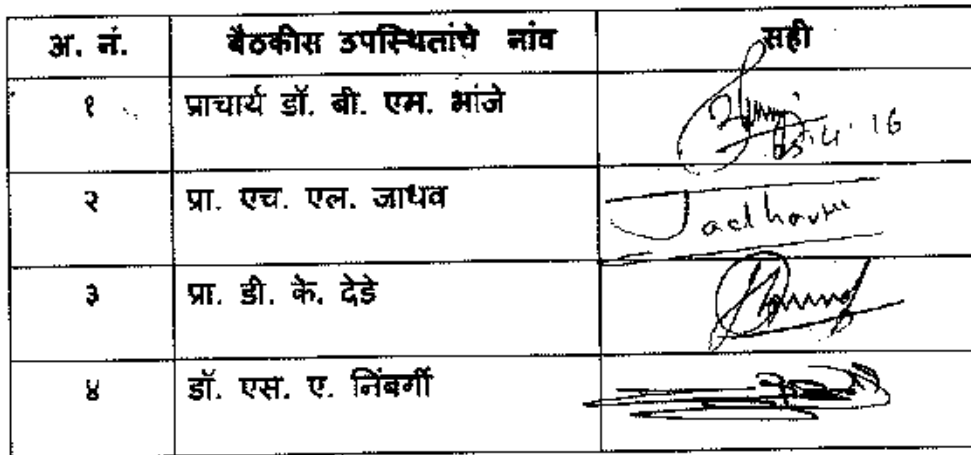 अ. नं. बैठकीस उपस्थितांचे नांव सही
१ प्राचार्य डॉ. बी. एम. भांजे
२ प्रा. एच. एल. जाधव Jadhav
३ प्रा. डी. के. देडे
४ डॉ. एस. ए. निंबर्गी